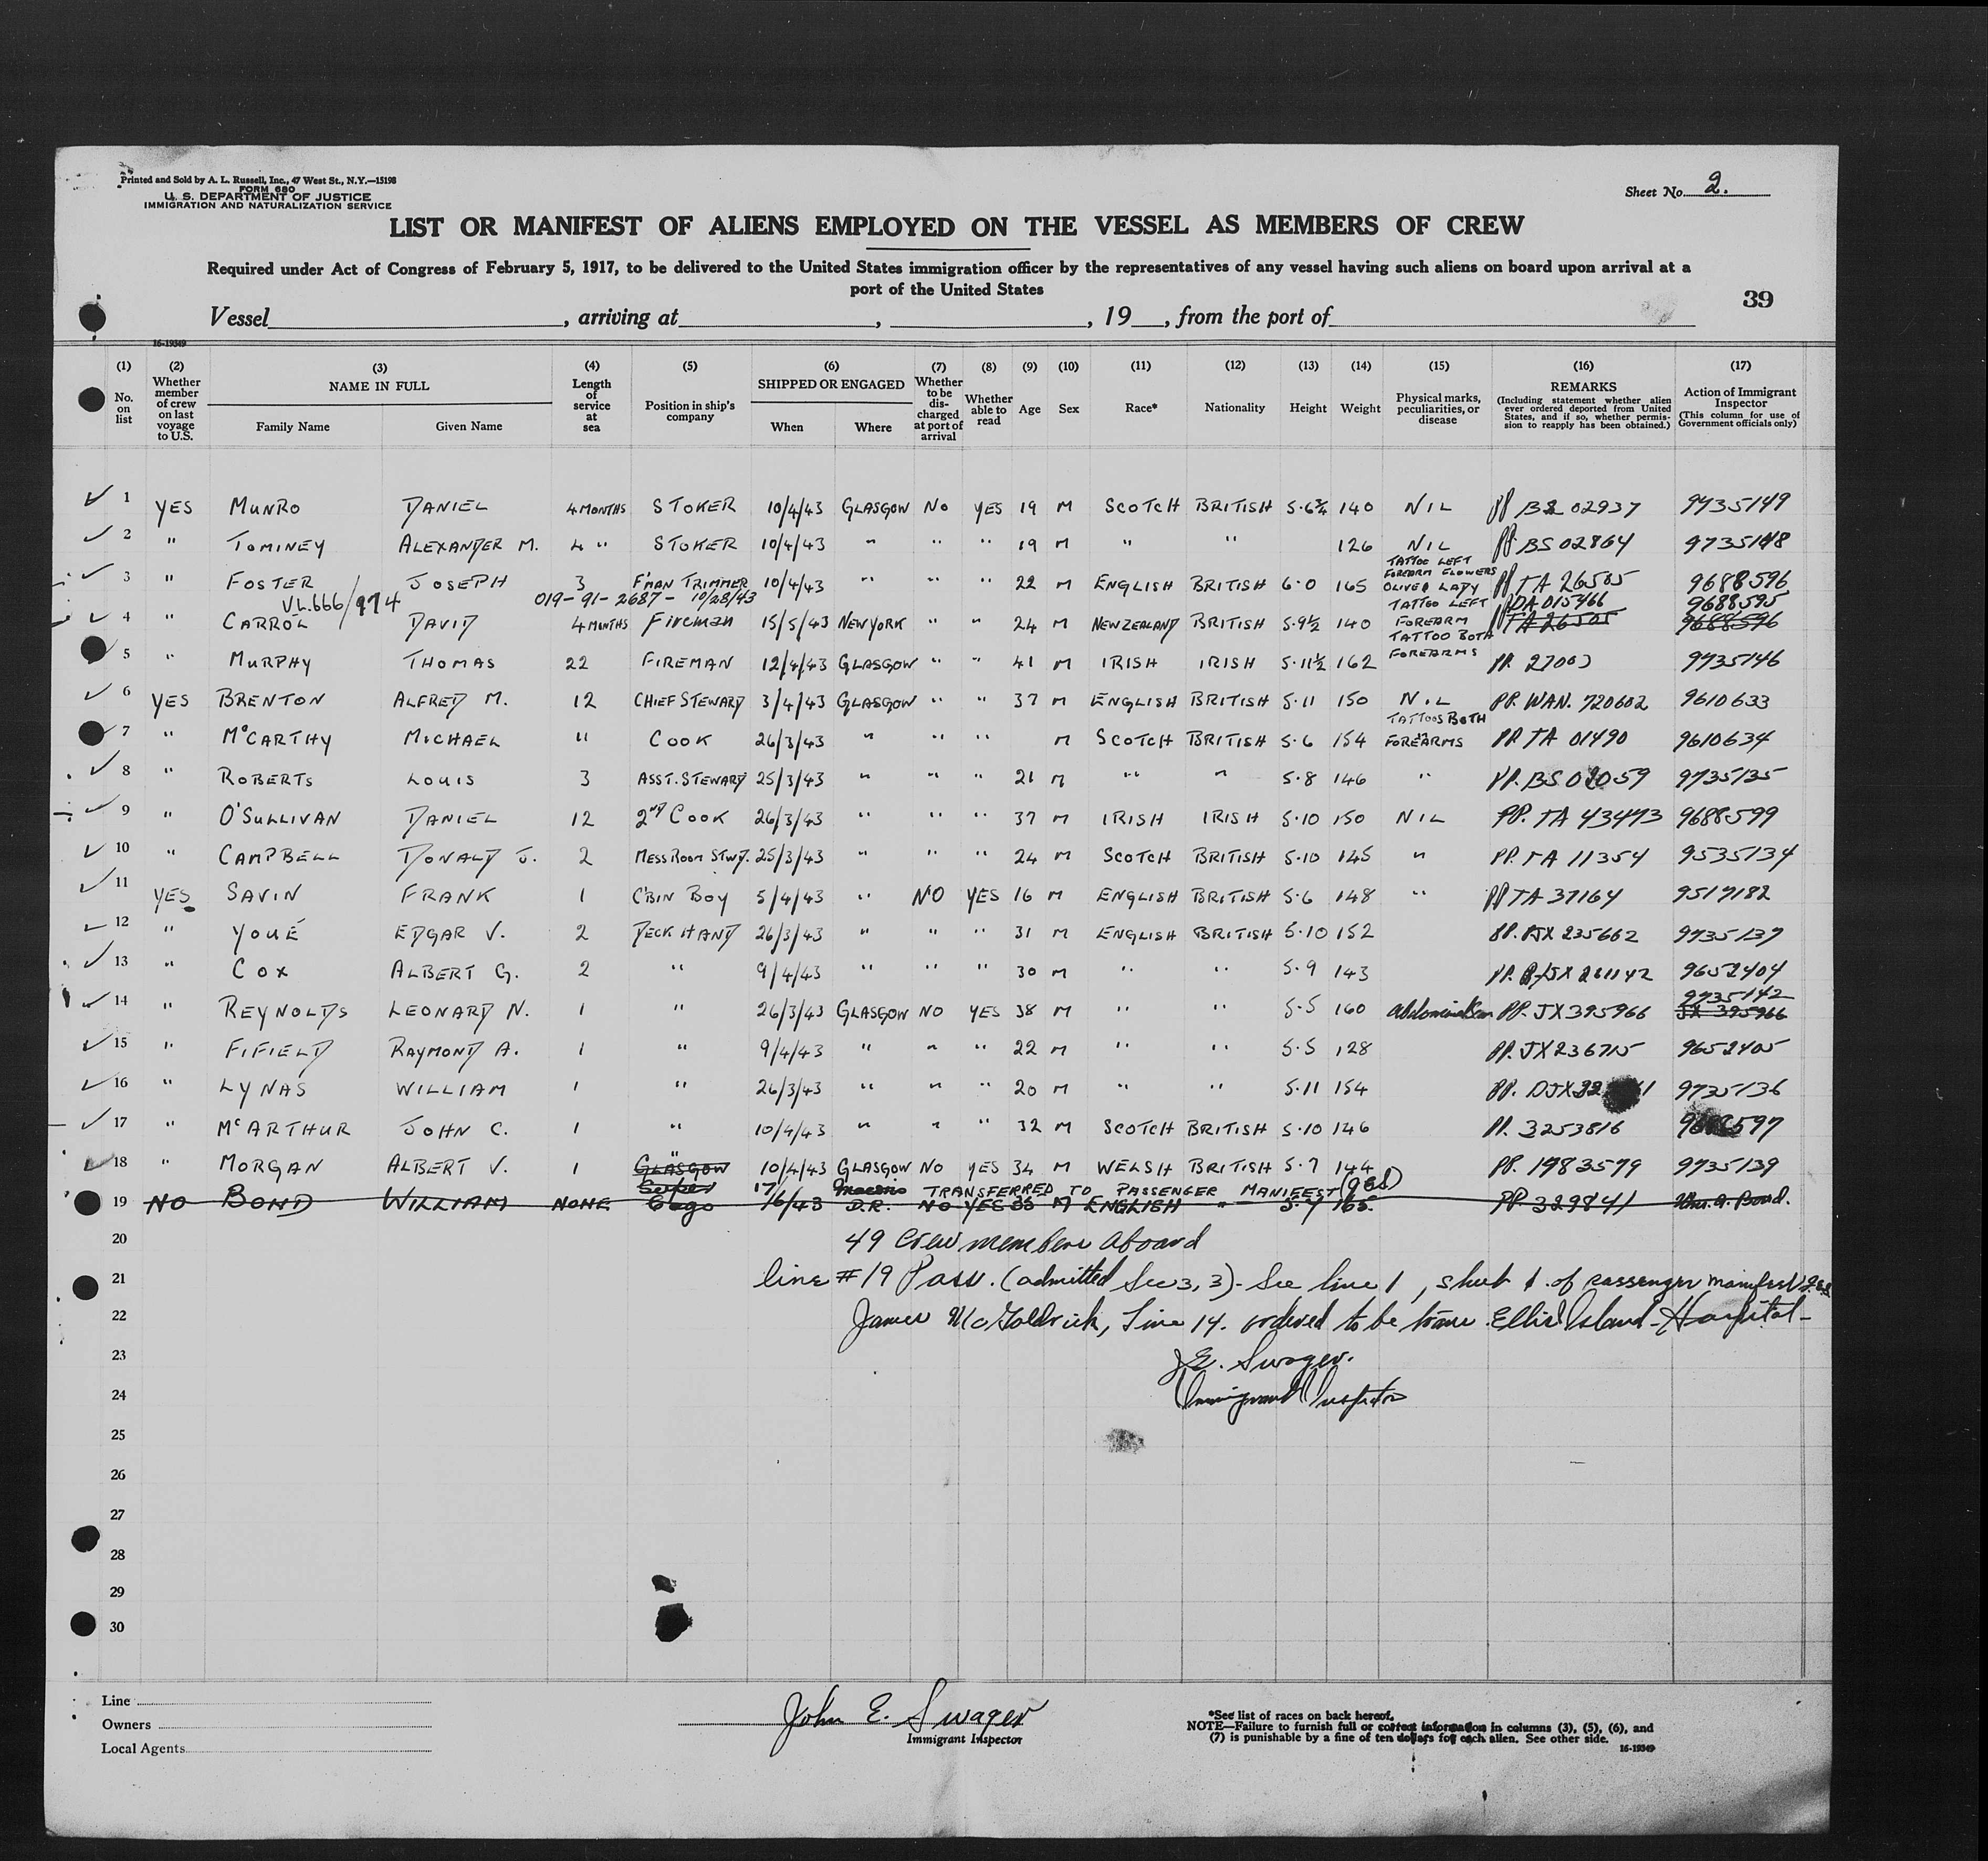 Printed and Sold by A. L. Russell, Inc., 47 West St., N.Y.—15198
FORM 680
U. S. DEPARTMENT OF JUSTICE
IMMIGRATION AND NATURALIZATION SERVICE
Sheet No. 2.
LIST OR MANIFEST OF ALIENS EMPLOYED ON THE VESSEL AS MEMBERS OF CREW
Required under Act of Congress of February 5, 1917, to be delivered to the United States immigration officer by the representatives of any vessel having such aliens on board upon arrival at a
port of the United States
39
Vessel , arriving at , , 19 , from the port of
16-19349
(1) No. on list
(2) Whether member of crew on last voyage to U.S.
(3) NAME IN FULL Family Name Given Name
(4) Length of service at sea
(5) Position in ship's company
(6) SHIPPED OR ENGAGED When Where
(7) Whether to be discharged at port of arrival
(8) Whether able to read
(9) Age
(10) Sex
(11) Race*
(12) Nationality
(13) Height
(14) Weight
(15) Physical marks, peculiarities, or disease
(16) REMARKS (Including statement whether alien ever ordered deported from United States, and if so, whether permission to reapply has been obtained.)
(17) Action of Immigrant Inspector (This column for use of Government officials only)
1 YES MUNRO DANIEL 4 MONTHS STOKER 10/4/43 GLASGOW NO YES 19 M SCOTCH BRITISH 5·6¾ 140 NIL PP BS 02937 9735149
2 " TOMINEY ALEXANDER M. 4 " STOKER 10/4/43 " " " 19 M " " 126 NIL PP BS 02864 9735148
3 " FOSTER JOSEPH 3 F'MAN TRIMMER 10/4/43 " " " 22 M ENGLISH BRITISH 6·0 165 TATTOO LEFT FOREARM FLOWERS OLIVE LADY PP TA 26505 9688596
VL.666/974 019-91-2687- 10/28/43
4 " CARROL DAVID 4 MONTHS Fireman 15/5/43 NEW YORK " " 24 M NEW ZEALAND BRITISH 5·9½ 140 TATTOO LEFT FOREARM PP DA 015466 TA 26505 9688595 9688596
5 " MURPHY THOMAS 22 FIREMAN 12/4/43 GLASGOW " " 41 M IRISH IRISH 5·11½ 162 TATTOO BOTH FOREARMS PP. 27003 9735146
6 YES BRENTON ALFRED M. 12 CHIEF STEWARD 3/4/43 GLASGOW " " 37 M ENGLISH BRITISH 5·11 150 NIL PP. WAN. 720602 9610633
7 " McCARTHY MICHAEL " COOK 26/3/43 " " " M SCOTCH BRITISH 5·6 154 TATTOOS BOTH FOREARMS PP. TA 01490 9610634
8 " ROBERTS LOUIS 3 ASST. STEWARD 25/3/43 " " " 21 M " " 5·8 146 " PP. BS 02059 9735135
9 " O'SULLIVAN DANIEL 12 2ND COOK 26/3/43 " " " 37 M IRISH IRISH 5·10 150 NIL PP. TA 43473 9688599
10 " CAMPBELL DONALD J. 2 MESS ROOM STWD. 25/3/43 " " " 24 M SCOTCH BRITISH 5·10 145 " PP. TA 11354 9535134
11 YES SAVIN FRANK 1 C'BIN BOY 5/4/43 " NO YES 16 M ENGLISH BRITISH 5·6 148 " PP TA 37164 9517182
12 " YOUÉ EDGAR V. 2 DECK HAND 26/3/43 " " " 31 M ENGLISH BRITISH 5·10 152 PP. PJX 235662 9735137
13 " COX ALBERT G. 2 " 9/4/43 " " " 30 M " " 5·9 143 9652404
14 " REYNOLDS LEONARD N. 1 " 26/3/43 GLASGOW NO YES 38 M " " 5·5 160 PP. JX 395966 9735142 JX 395966
15 " FIFIELD RAYMOND A. 1 " 9/4/43 " " " 22 M " " 5·5 128 PP. JX 236715 9652405
16 " LYNAS WILLIAM 1 " 26/3/43 " " " 20 M " " 5·11 154 PP. DJX 9735136
17 " McARTHUR JOHN C. 1 " 10/4/43 " " " 32 M SCOTCH BRITISH 5·10 146 PP. 3253816 9688597
18 " MORGAN ALBERT V. 1 " GLASGOW 10/4/43 GLASGOW NO YES 34 M WELSH BRITISH 5·7 144 PP. 1983579 9735139
TRANSFERRED TO PASSENGER MANIFEST
19 NO BOND WILLIAM NONE 17/6/43 D.R. NO YES 36 M ENGLISH " 5·7 165. PP. 329841 Wm. A. Bond.
20 49 Crew members aboard
21 line #19 Pass. (admitted Sec 3, 3)- See line 1, sheet 1. of passenger manifest
22 James McGoldrick, Line 14. ordered to be trans. Ellis Island Hospital-
23 J.E. Swager.
24 Immigrant Inspector
25
26
27
28
29
30
Line
Owners
Local Agents
John E. Swager
Immigrant Inspector
*See list of races on back hereof.
NOTE—Failure to furnish full or correct information in columns (3), (5), (6), and
(7) is punishable by a fine of ten dollars for each alien. See other side.
16-19349